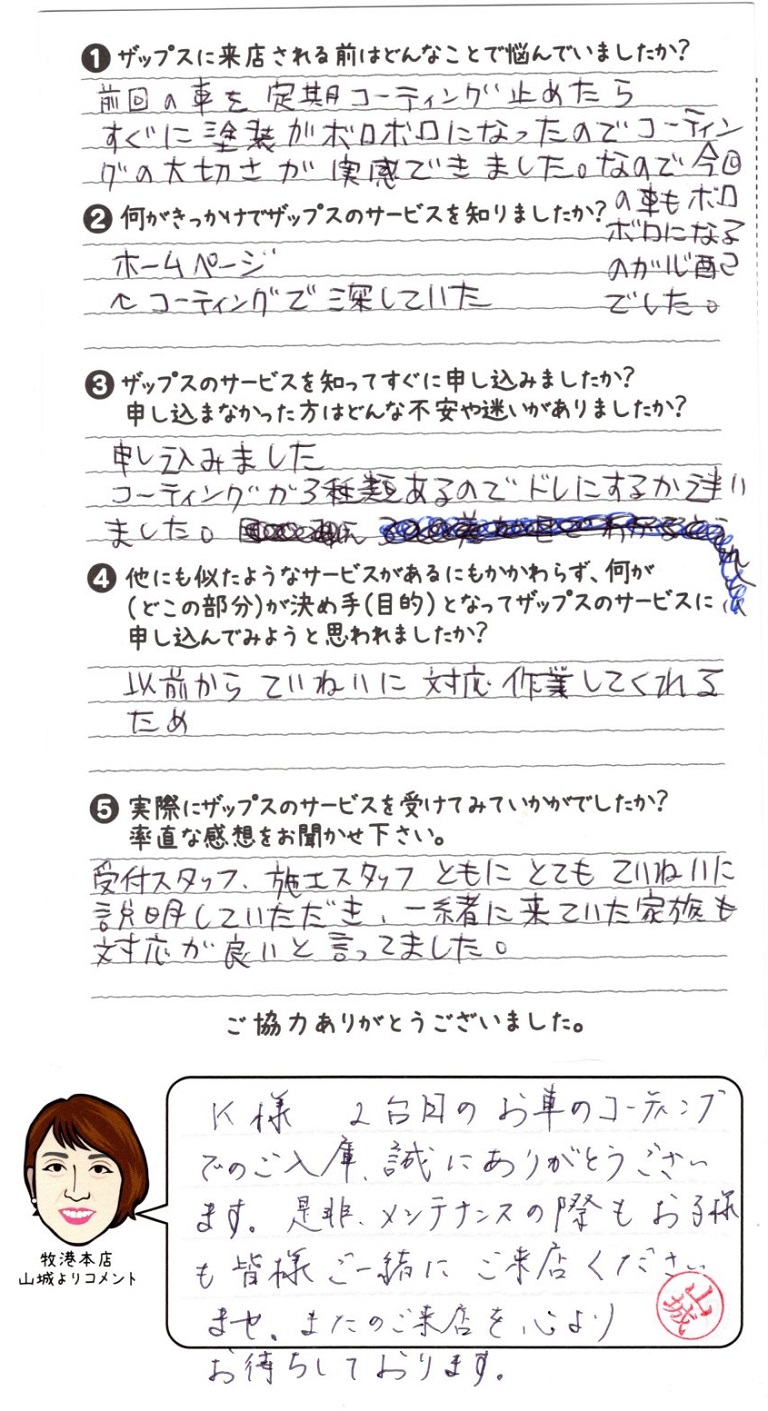 ❶ ザップスに来店される前はどんなことで悩んでいましたか?
前回の車を定期コーティング止めたら
すぐに塗装がボロボロになったのでコーティン
グの大切さが実感できました。なので今回
の車もボロ
ボロになる
のが心配
でした。
❷ 何がきっかけでザップスのサービスを知りましたか?
ホームページ
↑コーティングで探していた
❸ ザップスのサービスを知ってすぐに申し込みましたか?
申し込まなかった方はどんな不安や迷いがありましたか?
申し込みました
コーティングが3種類あるのでドレにするか迷い
ました。
❹ 他にも似たようなサービスがあるにもかかわらず、何が
(どこの部分)が決め手(目的)となってザップスのサービスに
申し込んでみようと思われましたか?
以前からていねいに対応作業してくれる
ため
❺ 実際にザップスのサービスを受けてみていかがでしたか?
率直な感想をお聞かせ下さい。
受付スタッフ、施工スタッフともにとてもていねいに
説明していただき、一緒に来ていた家族も
対応が良いと言ってました。
ご協力ありがとうございました。
K様 2台目のお車のコーティング
でのご入庫、誠にありがとうござい
ます。是非、メンテナンスの際もお子様
も皆様ご一緒にご来店ください
ませ。またのご来店を心より
お待ちしております。
山城
牧港本店
山城よりコメント